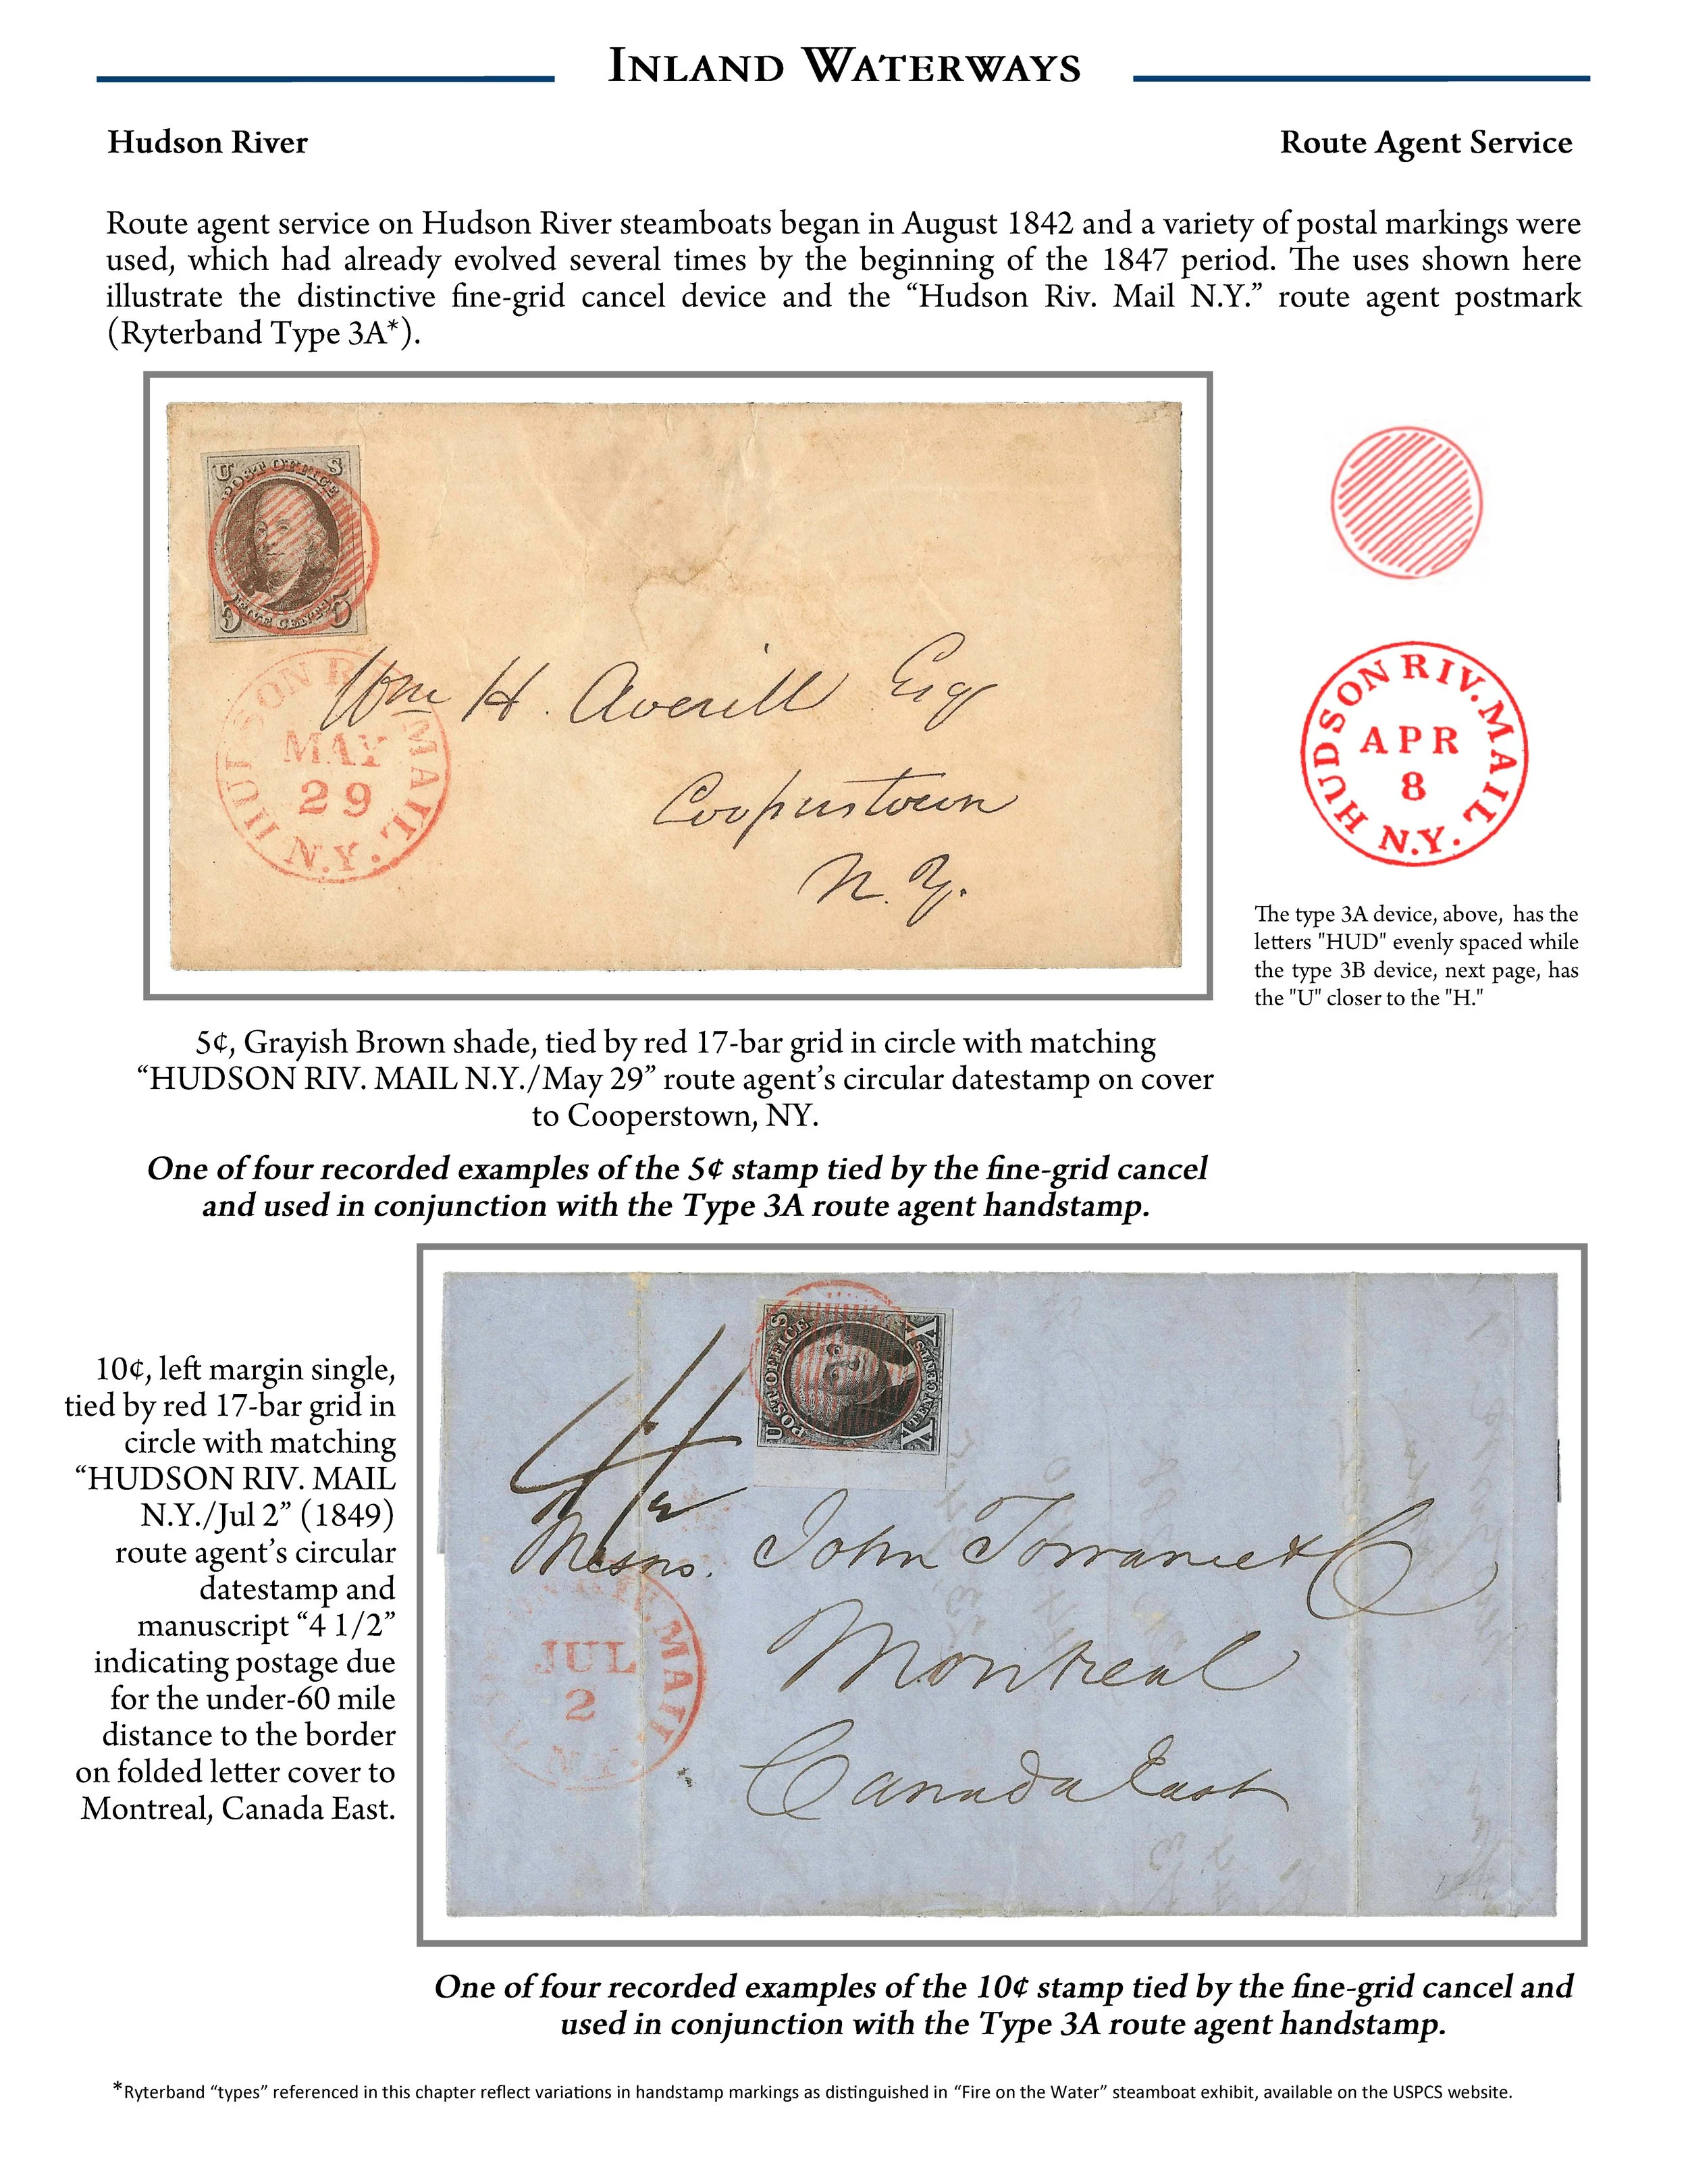 INLAND WATERWAYS
Hudson River
Route Agent Service
Route agent service on Hudson River steamboats began in August 1842 and a variety of postal markings were
used, which had already evolved several times by the beginning of the 1847 period. The uses shown here
illustrate the distinctive fine-grid cancel device and the “Hudson Riv. Mail N.Y.” route agent postmark
(Ryterband Type 3A*).
U S
POST OFFICE
FIVE CENTS
5 5
HUDSON R MAIL
MAY
29
N.Y.
Wm H. Averill Esq
Cooperstown
N.Y.
HUDSON RIV. MAIL
APR
8
N.Y.
The type 3A device, above, has the
letters "HUD" evenly spaced while
the type 3B device, next page, has
the "U" closer to the "H."
5¢, Grayish Brown shade, tied by red 17-bar grid in circle with matching
“HUDSON RIV. MAIL N.Y./May 29” route agent’s circular datestamp on cover
to Cooperstown, NY.
One of four recorded examples of the 5¢ stamp tied by the fine-grid cancel
and used in conjunction with the Type 3A route agent handstamp.
10¢, left margin single,
tied by red 17-bar grid in
circle with matching
“HUDSON RIV. MAIL
N.Y./Jul 2” (1849)
route agent’s circular
datestamp and
manuscript “4 1/2”
indicating postage due
for the under-60 mile
distance to the border
on folded letter cover to
Montreal, Canada East.
U S
POST OFFICE
X X
TEN CENTS
4 1/2
Messrs. John Torrance & Co
Montreal
Canada East
MAIL
JUL
2
N.Y.
One of four recorded examples of the 10¢ stamp tied by the fine-grid cancel and
used in conjunction with the Type 3A route agent handstamp.
*Ryterband “types” referenced in this chapter reflect variations in handstamp markings as distinguished in “Fire on the Water” steamboat exhibit, available on the USPCS website.